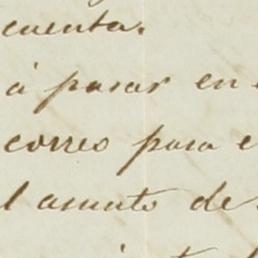 cuenta.
á pasar en
correo para e
l asunto de